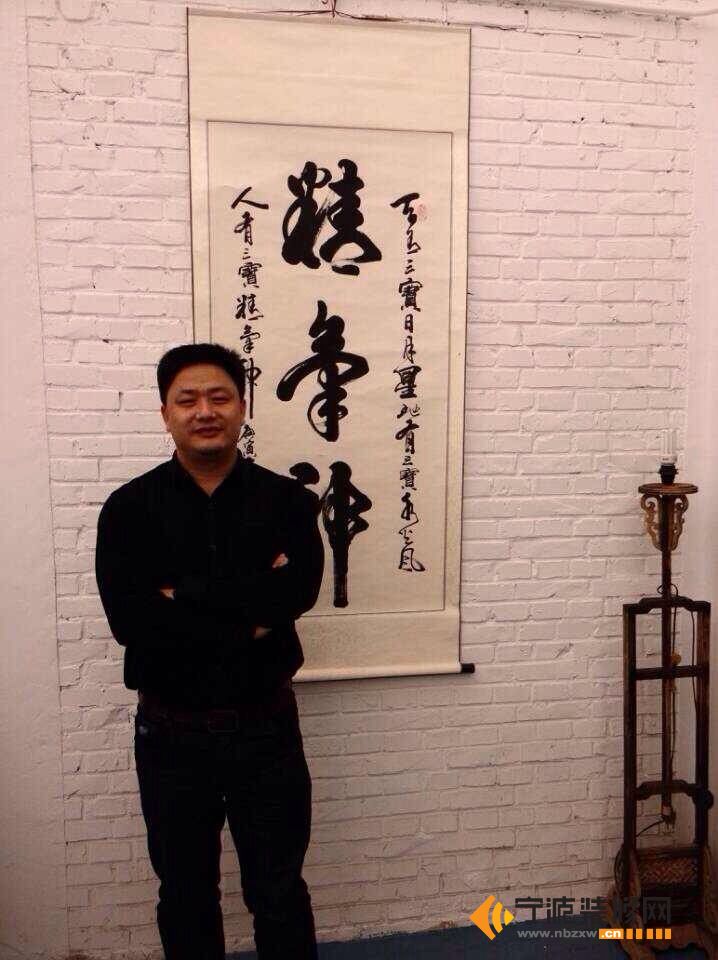 精氣神
天有三寶日月星地有三寶水火風
人有三寶精氣神庚寅
宁波装修网
www.nbzxw.cn